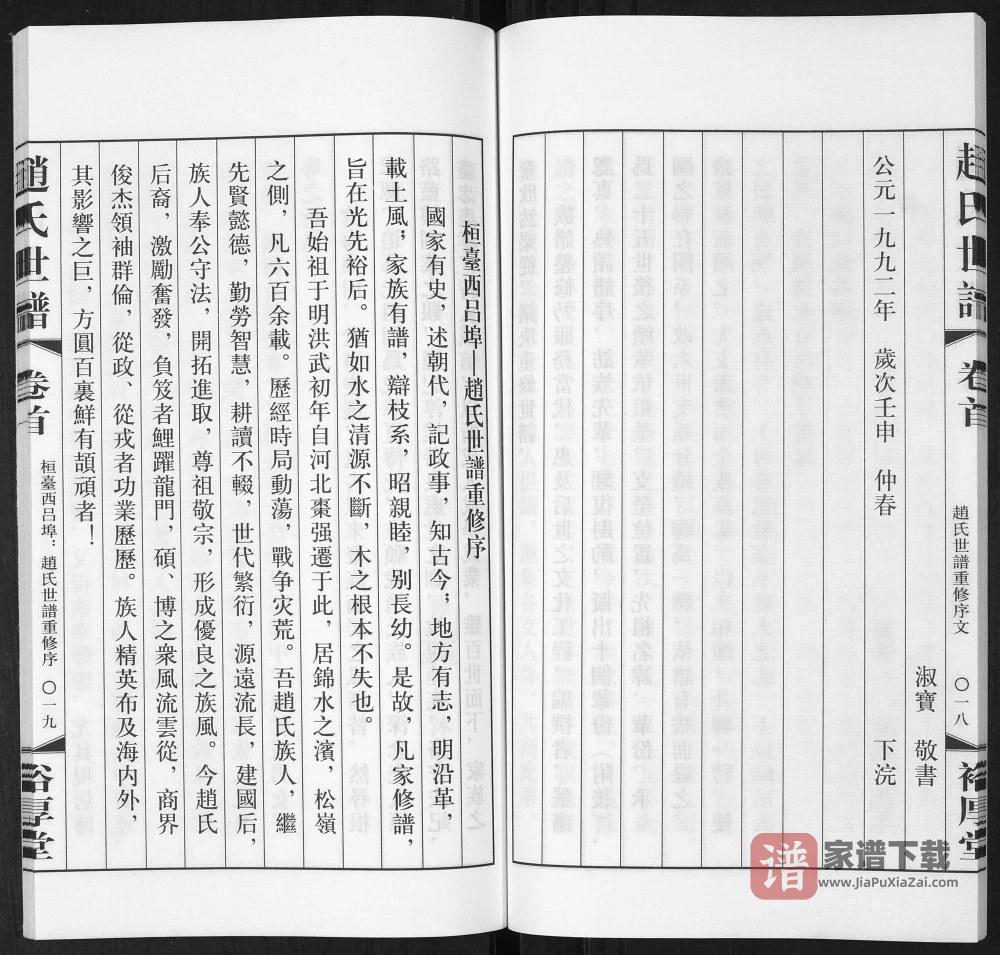 趙氏世譜
卷首
趙氏世譜重修序文
〇一八
裕厚堂
淑寶 敬書
公元一九九二年 歲次壬申 仲春 下浣
桓臺西吕埠 趙氏世譜重修序
國家有史，述朝代，記政事，知古今；地方有志，明沿革，
載土風；家族有譜，辯枝系，昭親睦，别長幼。是故，凡家修譜，
旨在光先裕后。猶如水之清源不斷，木之根本不失也。
吾始祖于明洪武初年自河北棗强遷于此，居錦水之濱，松嶺
之側，凡六百余載。歷經時局動蕩，戰争灾荒。吾趙氏族人，繼
先賢懿德，勤勞智慧，耕讀不輟，世代繁衍，源遠流長，建國后，
族人奉公守法，開拓進取，尊祖敬宗，形成優良之族風。今趙氏
后裔，激勵奮發，負笈者鯉躍龍門，碩、博之衆風流雲從，商界
俊杰領袖群倫，從政、從戎者功業歷歷。族人精英布及海内外，
其影響之巨，方圓百裏鮮有頡頏者！
趙氏世譜
卷首
桓臺西吕埠：趙氏世譜重修序
〇一九
裕厚堂
譜
家谱下载
www.JiaPuXiaZai.com